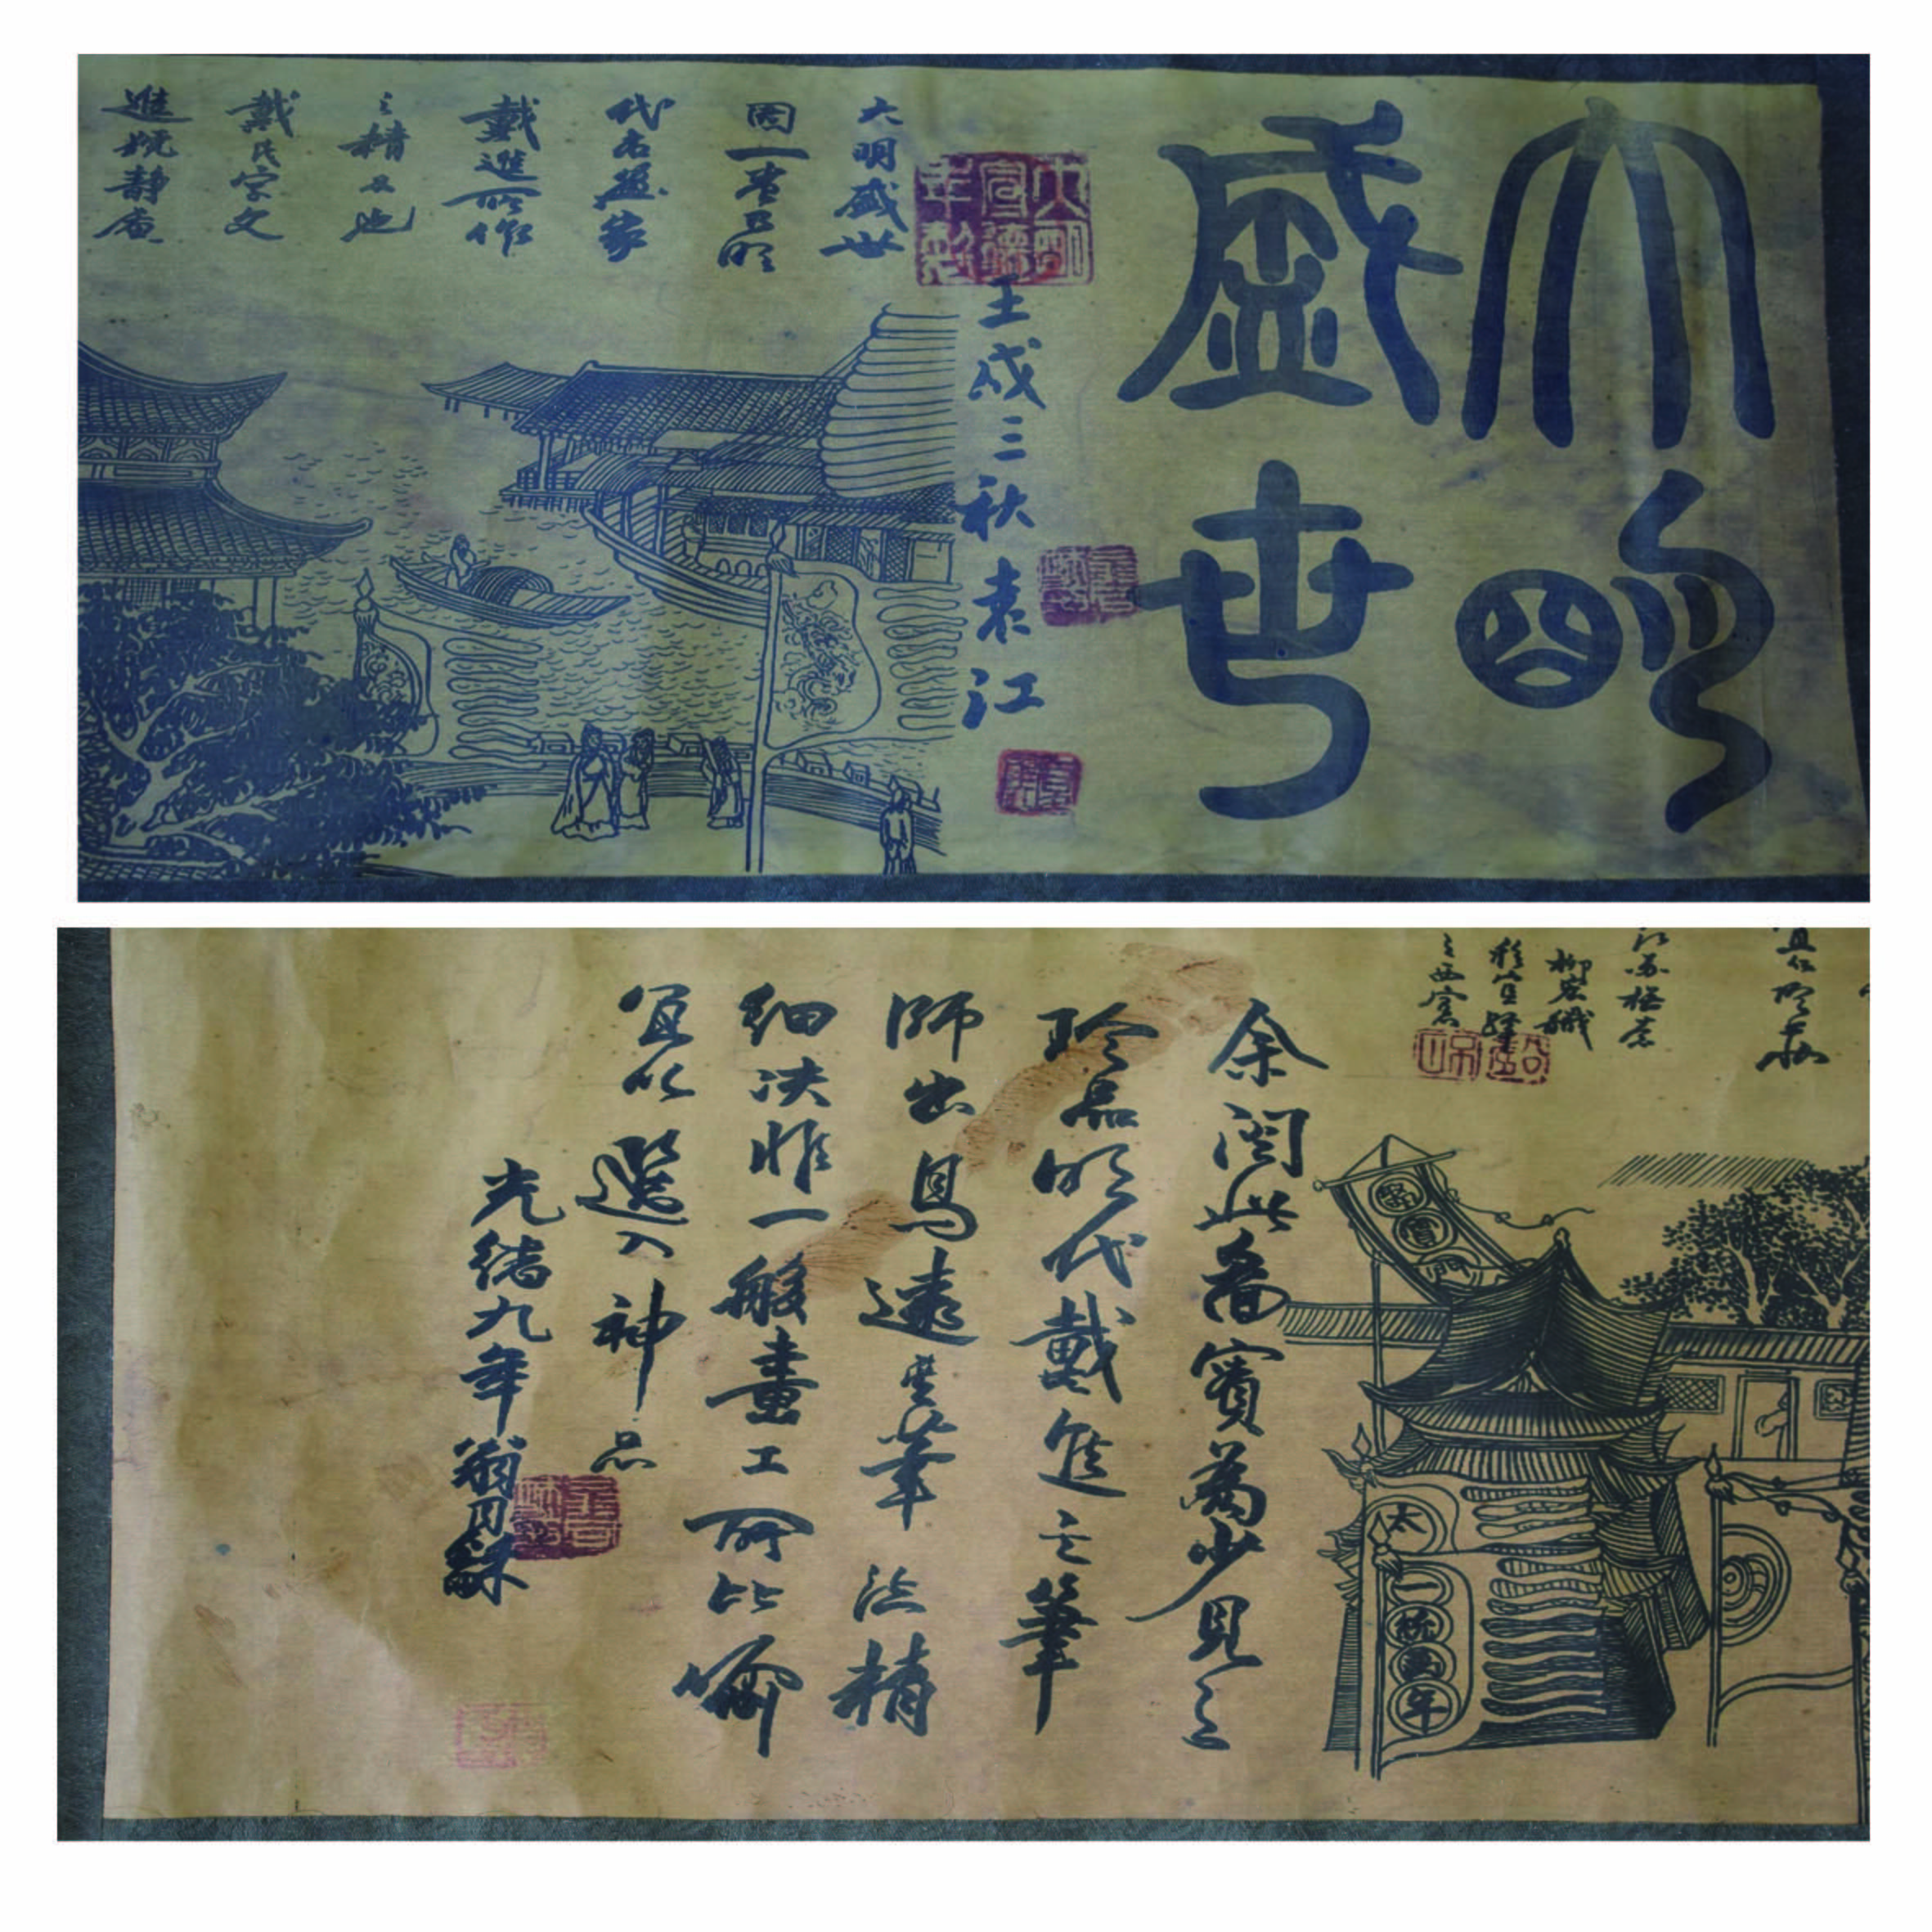 大明
盛世
大明宣德年製
壬戌三秋袁江
大明盛世
图一卷乃明
代名画家
戴進所作
之精品也
戴氏字文
進號静庵
江苏
之西窗
余阅此畵實為少見之
珍品明代戴進之筆
師出馬遠其筆法精
細决非一般畫工所比喻
宜以選入神品
光緒九年翁同龢
太
一
年